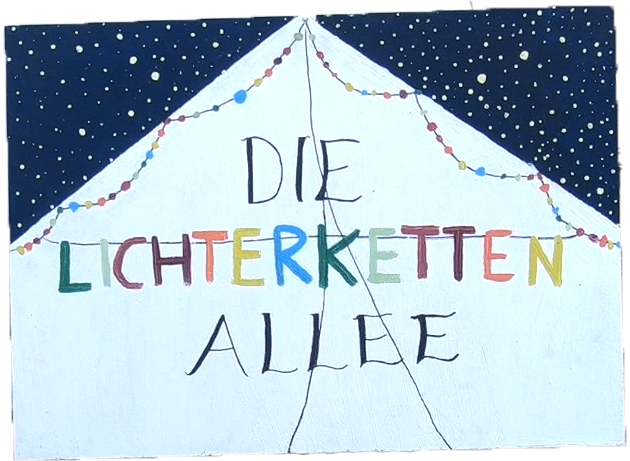 DIE
LICHTERKETTEN
ALLEE